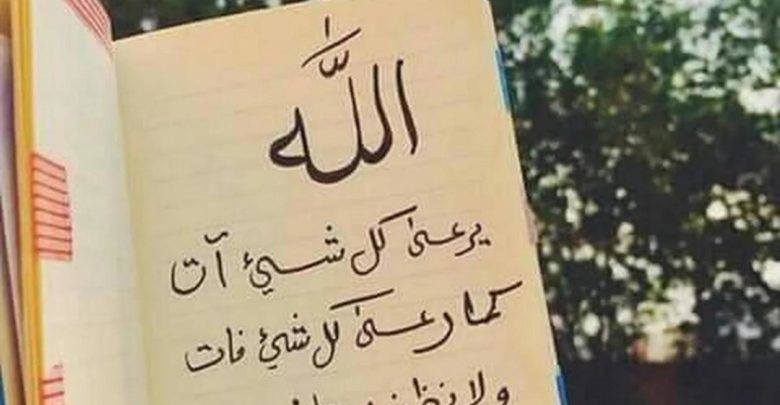 اللّٰه
يرعىٰ كل شيئ آت
كما رعىٰ كل شيئ فات
ولا